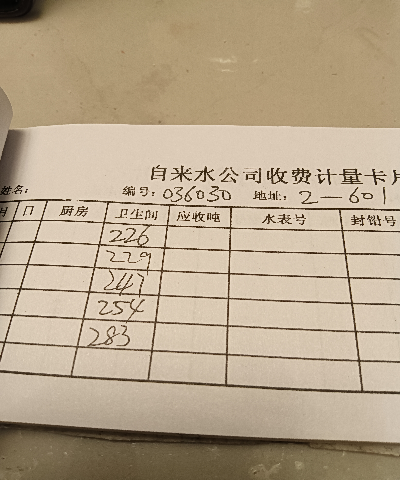 自来水公司收费计量卡片
姓名: 编号: 036030 地址: 2-601
月 日 厨房 卫生间 应收吨 水表号 封铅号
226
229
247
254
283